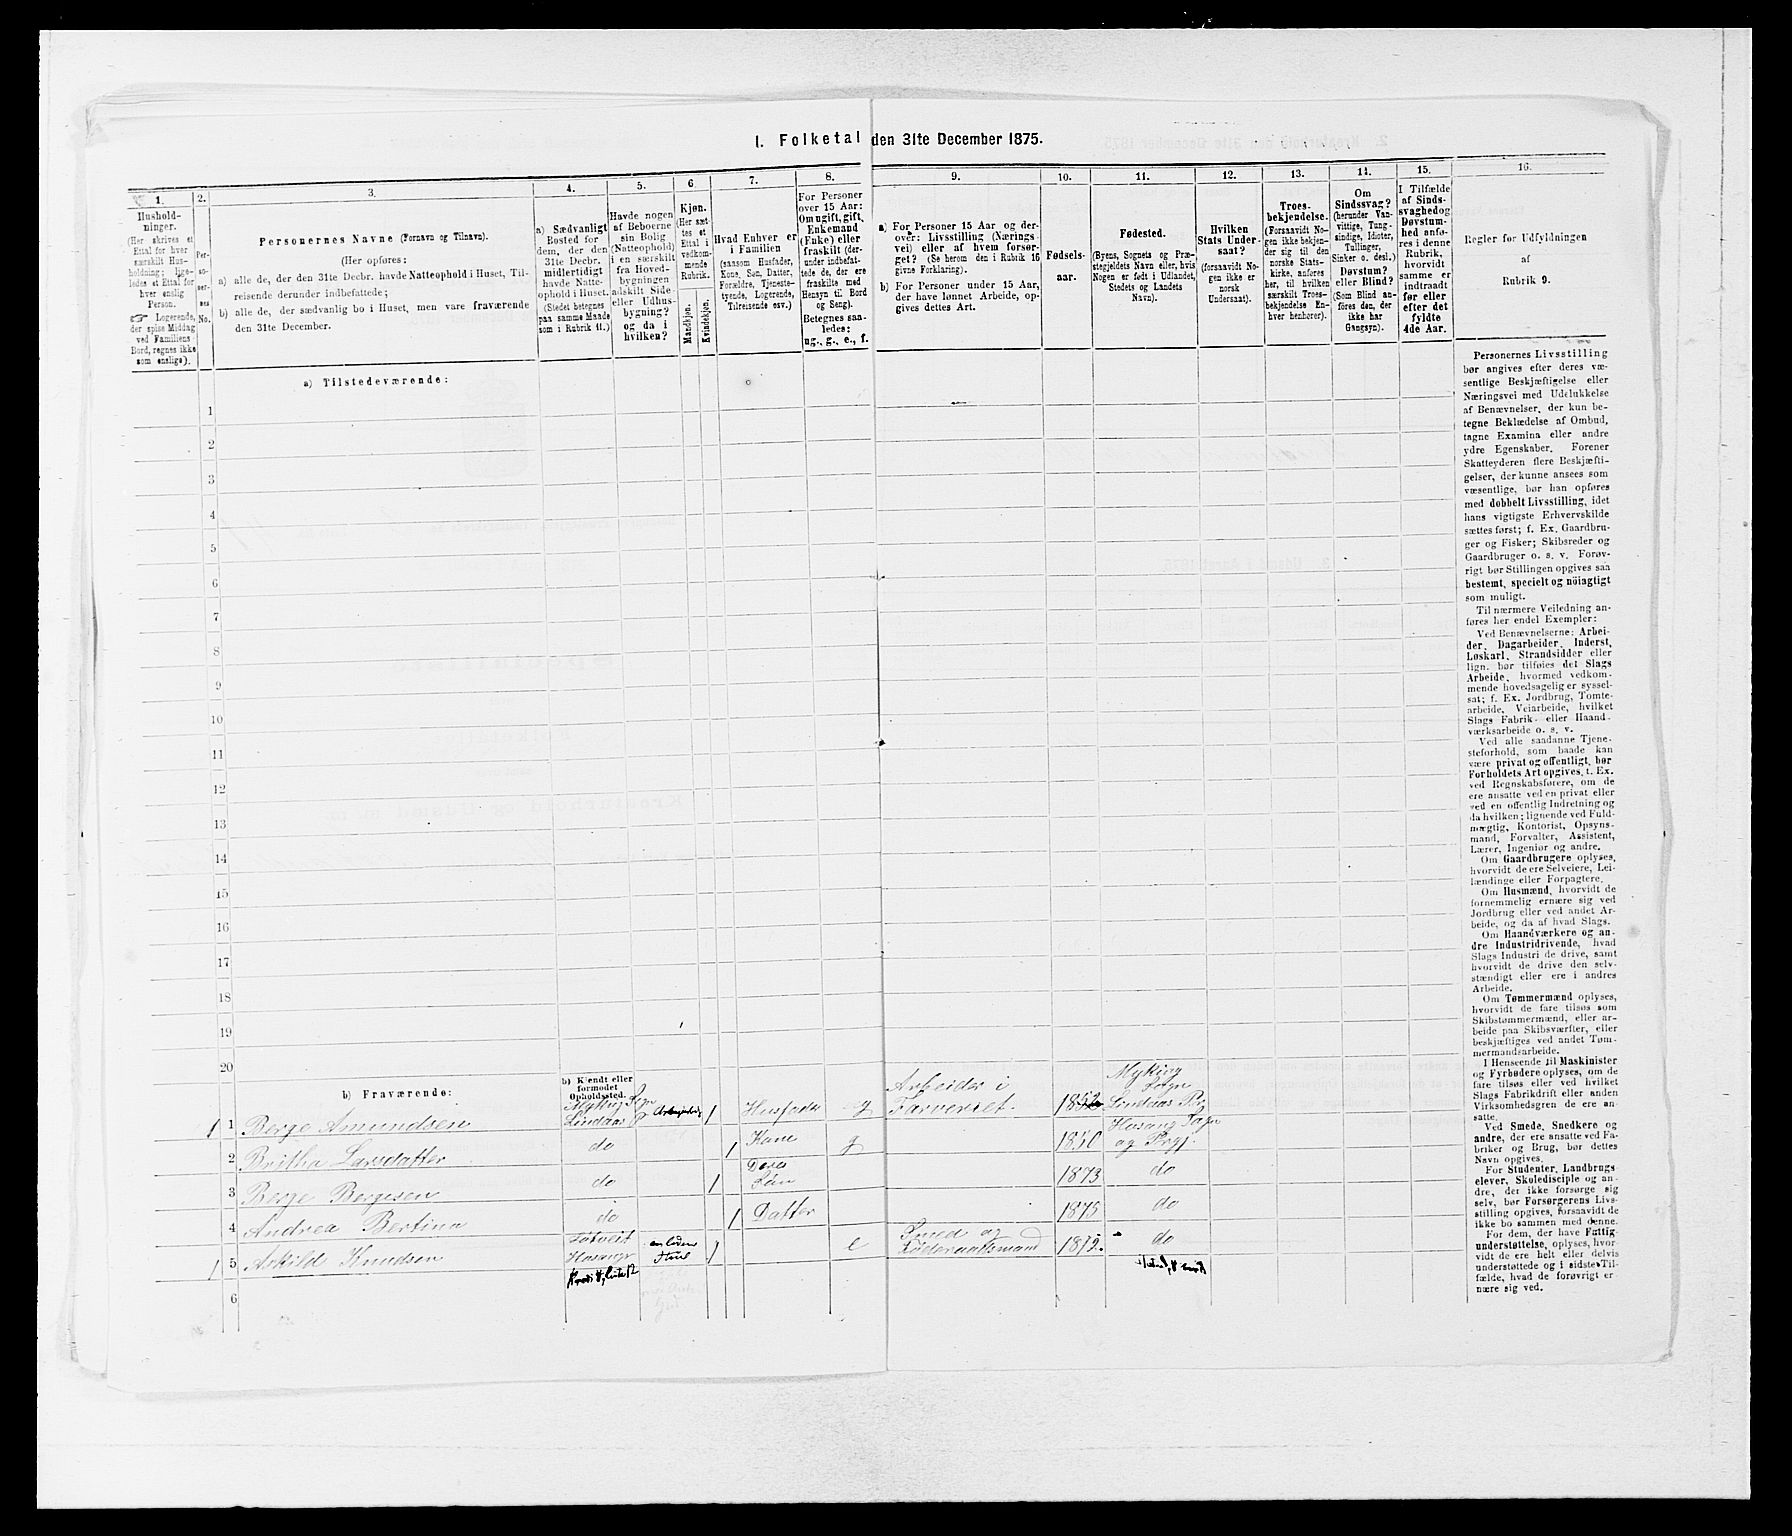 1. Folketal den 31te December 1875.
1.
Hushold-
ninger.
(Her skrives et
Ettal for hver
særskilt Hus-
holdning; lige-
ledes et Ettal for
hver enslig
Person.
☞ Logerende,
der spise Middag
ved Familiens
Bord, regnes ikke
som enslige).
2.
Per-
so-
ner-
nes
No.
3.
Personernes Navne (Fornavn og Tilnavn).
(Her opføres:
a) alle de, der den 31te Decbr. havde Natteophold i Huset, Til-
reisende derunder indbefattede;
b) alle de, der sædvanlig bo i Huset, men vare fraværende
den 31te December.
4.
a) Sædvanligt
Bosted for
dem, der den
31te Decbr.
midlertidigt
havde Natte-
ophold i Huset.
(Stedet betegnes
paa samme Maade
som i Rubrik 11.)
5.
Havde nogen
af Beboerne
sin Bolig
(Natteophold)
i en særskilt
fra Hoved-
bygningen
adskilt Side
eller Udhus-
bygning?
og da i
hvilken?
6.
Kjøn.
(Her sæt-
tes et
Ettal i
vedkom-
mende
Rubrik.
Mandkjøn.
Kvindekjøn.
7.
Hvad Enhver er
i Familien
(saasom Husfader,
Kone, Søn, Datter,
Forældre, Tjeneste-
tyende, Logerende,
Tilreisende osv.)
8.
For Personer
over 15 Aar:
Om ugift, gift,
Enkemand
(Enke) eller
fraskilt (der-
under indbefat-
tede de, der ere
fraskilte med
Hensyn til Bord
og Seng).
Betegnes saa-
ledes:
ug., g., e., f.
9.
a) For Personer 15 Aar og der-
over: Livsstilling (Nærings
vei) eller af hvem forsør-
get? (Se herom den i Rubrik 16
givne Forklaring).
b) For Personer under 15 Aar,
der have lønnet Arbeide, op-
gives dettes Art.
10.
Fødsels-
aar.
11.
Fødested.
(Byens, Sognets og Præ-
stegjeldets Navn eller, hvis
Nogen er født i Udlandet,
Stedets og Landets
Navn).
12.
Hvilken
Stats Under-
saat?
(forsaavidt No-
gen ikke er
norsk
Undersaat).
13.
Troes-
bekjendelse.
(Forsaavidt No-
gen ikke bekjen-
der sig til den
norske Stats-
kirke, anføres
her, til hvilken
særskilt Troes-
bekjendelse En-
hver henhører).
14.
Om
Sindssvag?
(herunder Van-
vittige, Tung-
sindige, Idioter,
Tullinger,
Sinker o. desl.)
Døvstum?
eller Blind?
(Som Blind an-
føres den, der
ikke har
Gangsyn).
15.
I Tilfælde
af Sinds-
svaghed og
Døvstum-
hed anfø-
res i denne
Rubrik,
hvorvidt
samme er
indtraadt
før eller
efter det
fyldte
4de Aar.
16.
Regler for Udfyldningen
af
Rubrik 9.
Personernes Livsstilling
bør angives efter deres væ-
sentlige Beskjæftigelse eller
Næringsvei med Udelukkelse
af Benævnelser, der kun be-
tegne Beklædelse af Ombud,
tagne Examina eller andre
ydre Egenskaber. Forener
Skatteyderen flere Beskjæfti-
gelser, der kunne ansees som
væsentlige, bør han opføres
med dobbelt Livsstilling, idet
hans vigtigste Erhvervskilde
sættes først; f. Ex. Gaardbru-
ger og Fisker; Skibsreder og
Gaardbruger o. s. v. Forøv-
rigt bør Stillingen opgives saa
bestemt, specielt og nöiagtigt
som muligt.
Til nærmere Veiledning an-
føres her endel Exempler:
Ved Benævnelserne: Arbei-
der, Dagarbeider, Inderst,
Løskarl, Strandsidder eller
lign. bør tilføies det Slags
Arbeide, hvormed vedkom-
mende hovedsagelig er syssel-
sat; f. Ex. Jordbrug, Tomte-
arbeide, Veiarbeide, hvilket
Slags Fabrik- eller Haand-
værksarbeide o. s. v.
Ved alle saadanne Tjene-
steforhold, som baade kan
være privat og offentligt, bør
Forholdets Art opgives, f. Ex.
ved Regnskabsførere, om de
ere ansatte ved en privat eller
ved en offentlig Indretning og
da hvilken; lignende ved Fuld-
mægtig, Kontorist, Opsyns-
mand, Forvalter, Assistent,
Lærer, Ingeniør og andre.
Om Gaardbrugere oplyses,
hvorvidt de ere Selveiere, Lei-
lændinge eller Forpagtere.
Om Husmænd, hvorvidt de
fornemmelig ernære sig ved
Jordbrug eller ved andet Ar-
beide, og da af hvad Slags.
Om Haandværkere og an-
dre Industridrivende, hvad
Slags Industri de drive, samt
hvorvidt de drive den selv-
stændigt eller ere i andres
Arbeide.
Om Tømmermænd oplyses,
hvorvidt de fare tilsøs som
Skibstømmermænd, eller ar-
beide paa Skibsværfter, eller
beskjæftiges ved andet Tøm-
mermandsarbeide.
I Henseende til Maskinister
og Fyrbødere oplyses, om de
fare tilsøs eller ved hvilket
Slags Fabrikdrift eller anden
Virksomhedsgren de ere an-
satte.
Ved Smede, Snedkere og
andre, der ere ansatte ved Fa-
briker og Brug, bør dettes
Navn opgives.
For Studenter, Landbrugs-
elever, Skoledisciple og an-
dre, der ikke forsørge sig
selv, bør Forsørgerens Livs-
stilling opgives, forsaavidt de
ikke bo sammen med denne.
For dem, der have Fattig-
understøttelse, oplyses, hvor-
vidt de ere helt eller delvis
understøttede og i sidste Til-
fælde, hvad de forøvrigt er-
nære sig ved.
a) Tilstedeværende:
1
2
3
4
5
6
7
8
9
10
11
12
13
14
15
16
17
18
19
20
b) Fraværende:
b) Kjendt eller
formodet
Opholdssted.
1 1 Berge Amundsen Mykling Sogn Lindaas P 1 Husfader g Arbeider i Farveriet. 1852 Mykling Sogn Lindaas Pr.
2 Britha Larsdatter do 1 Kone g 1850 Hosang Sogn og Prgj.
3 Berge Bergesen do 1 Deres Søn 1873 do
4 Andrea Bertina do 1 Datter 1875 do
1 5 Askild Knudsen Hosanger 1 e Smed og Føderaadsmand 1812. do
6